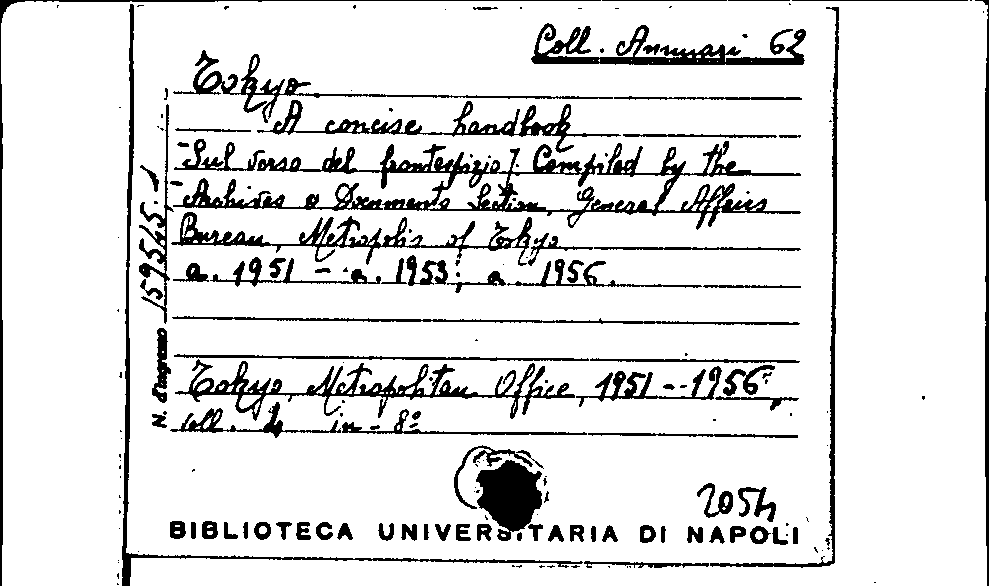 Coll. Annuari 62
Tokyo.
A concise handbook.
[Sul verso del frontespizio]. Compiled by the
Archives & Documents Section, General Affairs
Bureau, Metropolis of Tokyo.
a. 1951 - a. 1953; a. 1956.
Tokyo, Metropolitan Office, 1951--1956,
in-8°
N. d'ingresso
2054
BIBLIOTECA UNIVERSITARIA DI NAPOLI